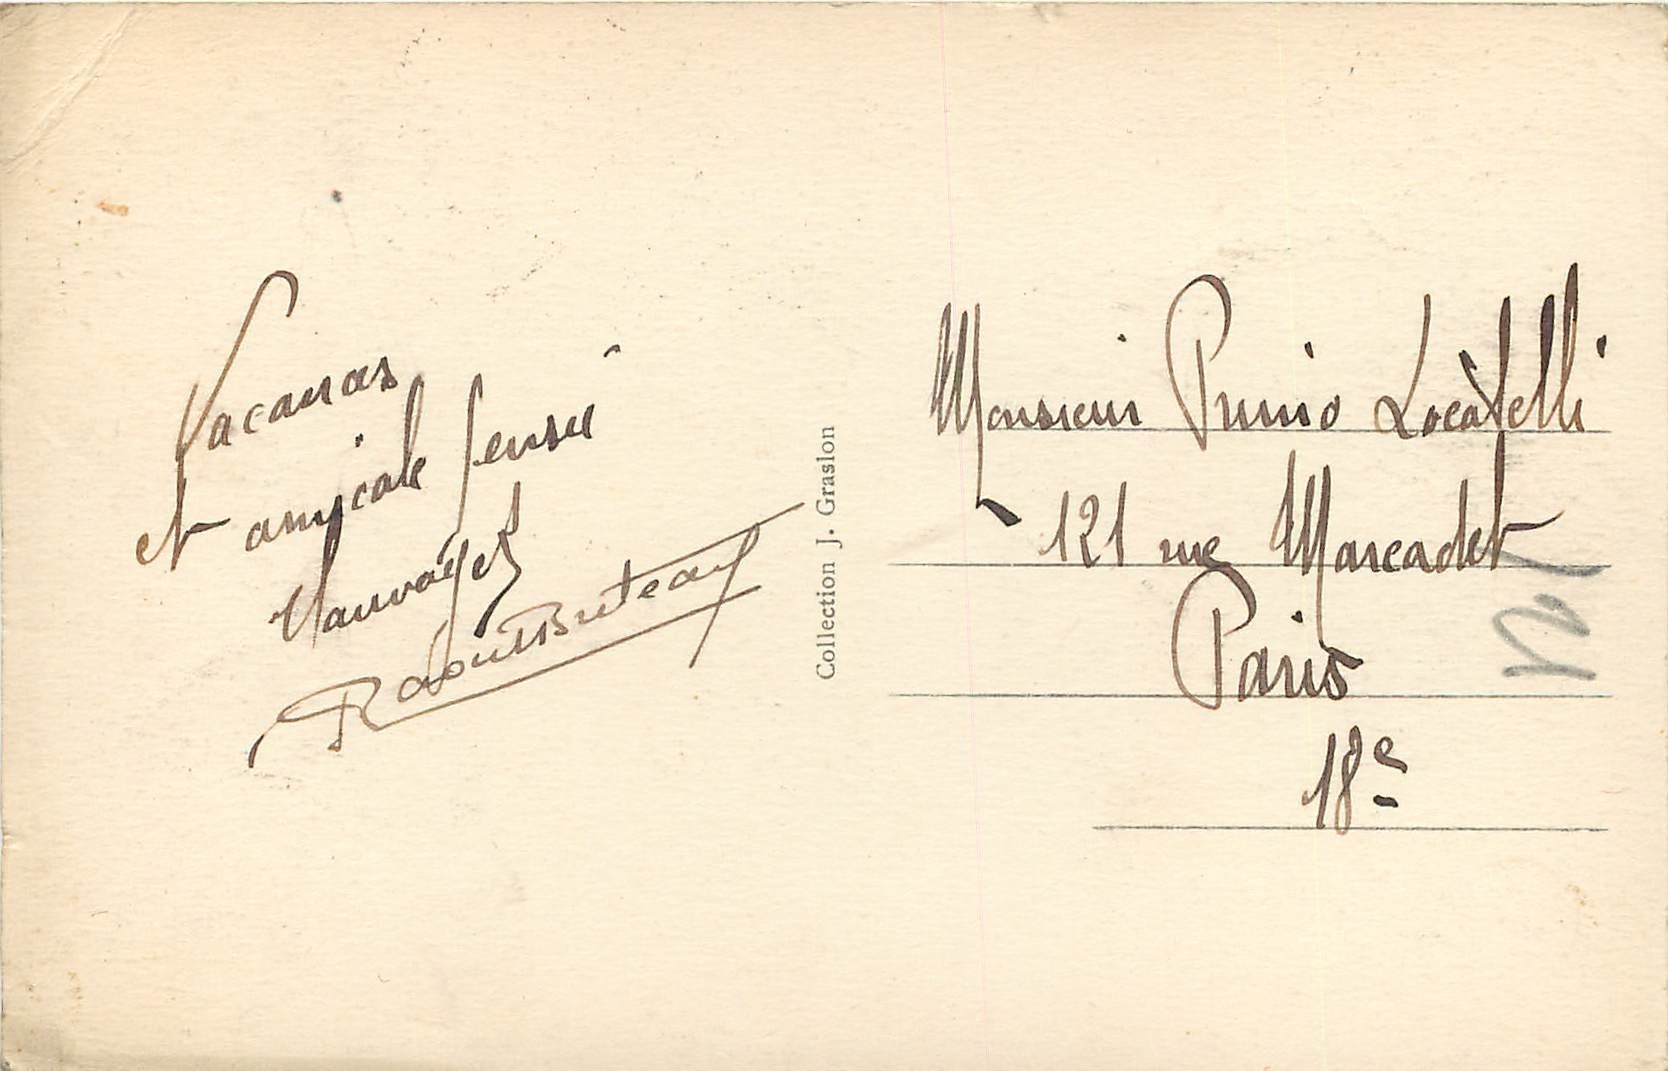 Vacances
et amicale pensée
Vauvoget
Raoul Buteau
Collection J. Graslon
Monsieur Primo Locatelli
121 rue Marcadet
Paris
18e